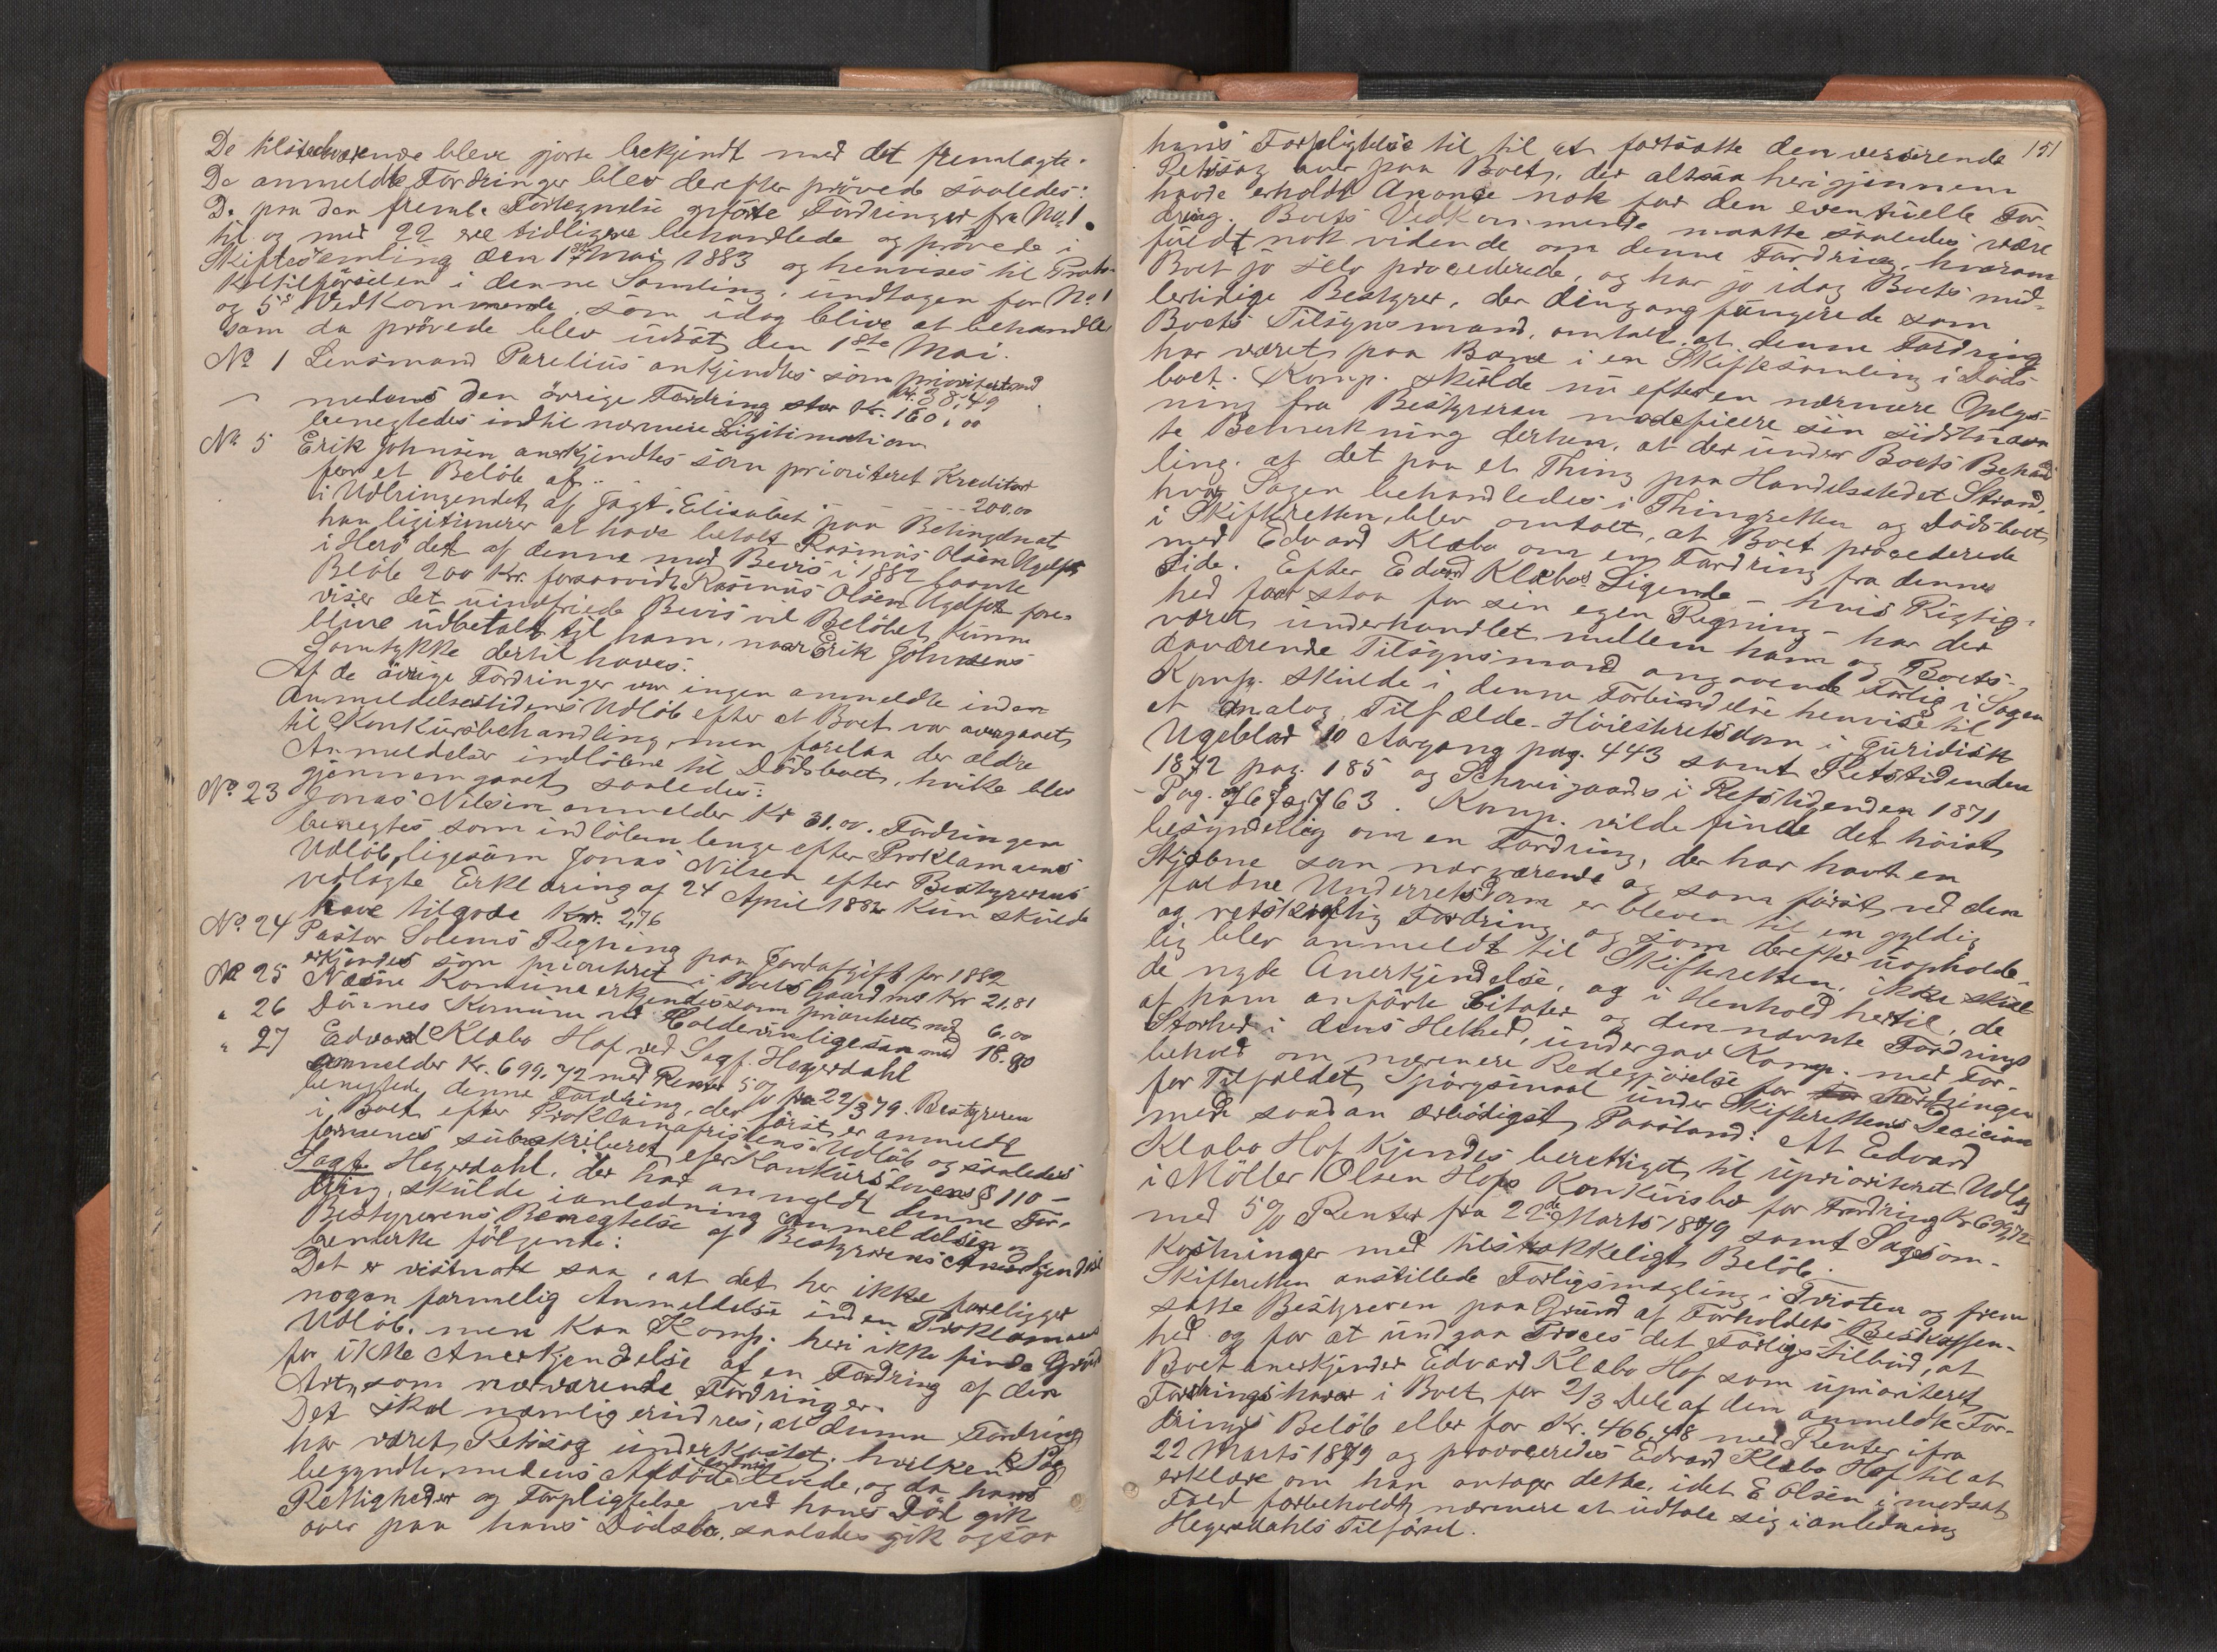 De tilstedeværende bleve gjorte bekjendt med det fremlagte.
De anmeldte Fordringer blev derefter prövede saaledes:
De paa den fremlc Fortegnelse opförte Fordringer fra No. 1
til og med 22 ere tidligere behandlede og prövede i
Skiftesamling den 1ste Mai 1883 og henvises til Proto-
koltilförselen i denne Samling, undtagen for No. 1
og 5s Vedkommende, som idag blive at behandle
som da prövede blev udsat den 1ste Mai.
No 1 Lensmand Parelius ankjendtes som prioritert med
Kr. 38,49
medens den övrige Fordring stor Kr. 160,00
benegtedes indtil nærmere Ligitimation
No 5 Erik Johnsen anerkjendtes som prioriteret Kreditor
for et Beløb af .. 200,00
i Udbringendet af Jagt "Elisabet" paa Betingelse at
han ligitimerer at have betalt Rasmus Olsen
i Herö det af denne med Bevis i 1882 laante
Belöb 200 Kr. forsaavidt Rasmus Olsen fore-
viser det uindfriede Bevis vil Belöbet kunne
blive udbetalt til ham, naar Erik Johnsens
Samtykke dertil haves.
Af de övrige Fordringer var ingen anmeldte inden
Anmeldelsestidens Udlöb efter at Boet var overgaaet
til Konkursbehandling, men forelaa der ældre
Anmeldelser indlöbne til Dödsboet, hvilke blev
gjennemgaaet saaledes:
No. 23 Jonas Nilsen anmelder Kr 31.00. Fordringen
benegtes som indlöben længe efter Proklamaens
Udlöb, ligesom Jonas Nilsen efter Bestyrerens
vedlagte Erklæring af 24 April 1882 kun skulde
have tilgode Kr. 2,76
No. 24 Pastor Solems Regning paa Jordafgift for 1882
erkjendes som prioritert i Boets Gaard med Kr 21.81
No 25 Næsne Komune erkjendes som prioriteret med 6.00
" 26 Dönnes Komune ved ligesaa med 18.90
" 27 Edvard Klæbo Hof ved Sagf. Hegerdahl
anmelder Kr. 699.72 med Renter 5% fra 22/3 79. Bestyreren
benegtede denne Fordring, der först er anmeldt
i Boet efter Proklamafristens Udlöb og saaledes
formenes efter Konkurslovens § 110 –
Sagf. Hegerdahl, der har anmeldt denne For-
dring, skulde i anledning Anmeldelsen og
Bestyrerens Benegtelse af Bestyrerens Anerkjendelse
bemerke fölgende:
Det er vistnok saa, at det her ikke foreligger
nogen formelig Anmeldelse inden Proklamaens
Udlöb, men kan Komp. heri ikke finde Grund
for ikke Anerkjendelse af en Fordring af den
Art, som nærværende Fordringer.
Det skal nemlig erindres, at denne Fordring
har været Retssag underkastet, hvilken Sag
begyndte medens Afdöde endnu levede, og da hans
Rettigheder og Forpligtelse ved hans Död gik
over paa hans Dödsbo, saaledes gik ogsaa
151
hans Forpligtelse til til at fortsætte den verserende
Retssag over paa Boet, der altsaa herigjennem
havde erholdt Anonce nok for den eventuelle For-
dring. Boets Vedkommende maatte saaledes være
fuldt nok vidende om denne Fordring, hvorom
Boet jo selv procederede, og har jo idag Boets mid-
lertidige Bestyrer, der dengang fungerede som
Boets Tilsynsmand, omtalt, at denne Fordring
har været paa Bane i en Skiftesamling i Döds-
boet. Komp. skulde nu efter en nærmere Oplys-
ning fra Bestyreren modeficere sin sidstnævn
te Bemerkning derhen, at der under Boets Behand
ling, at det paa et Thing paa Handelsstedet Strand,
hvor Sagen behandledes i Thingretten og Dödsboet
i Skifteretten, blev omtalt, at Boet procederede
med Edvard Klæbo om en Fordring fra dennes
Side. Efter Edvard Klæbos Sigende – hvis Rigtig-
hed faar staa for sin egen Regning – har der
været underhandlet mellem ham og Boets
daværende Tilsynsmand angaaende Forlig i Sagen
Komp. skulde i denne Forbindelse henvise til
et analog Tilfælde – Höiesteretsdom i Juridisk
Ugeblad 10 Aargang pag. 443 samt Retstidenden
1872 pag. 185 og Schweigaards i Retstidenden 1871
Pag. 767 og 763. Komp. vilde finde det höist
besynderlig om en Fordring, der har havt en
Skjæbne som nærværende og som först ved den
faldne Underretsdom er bleven til en gyldig
og retskraftig Fordring og som derefter uopholde-
lig blev anmeldt til Skifteretten, ikke skul
de nyde Anerkjendelse, og i Henhold hertil, de
af ham anförte Citater og den nævnte Fordrings
Storhed i dens Helhed, undergav Komp. med For-
behold om nærmere Redegjörelse for Fordringen
for Tilfældet, Spörgsmaal under Skifterettens Decision
med saadan ærbödigst Paastand: At Edvard
Klæbo Hof kjendes berettiget til uprioriteret Udlæg
i Möller Olsen Hofs Konkursbo for Fordring Kr 699,72
med 5% Renter fra 22de Marts 1879 samt Sagsom-
kostninger med tilstrækkeligt Belöb.
Skifteretten anstillede Forligsmægling i Tvisten og frem
satte Bestyreren paa Grund af Forholdets Beskaffen-
hed og for at undgaa Proces det Forligs-Tilbud, at
Boet anerkjender Edvard Klæbo Hof som uprioriteret
Fordringshaver i Boet for 2/3 Dele af den anmeldte For-
drings Belöb eller for Kr. 466,48 med Renter ifra
22 Marts 1879 og provoceredes Edvard Klæbo Hof til at
erklære om han antager dette, idet E Olsen i modsat
Fald forbeholdt nærmere at udtale sig i anledning
Hegerdahls Tilförsel.